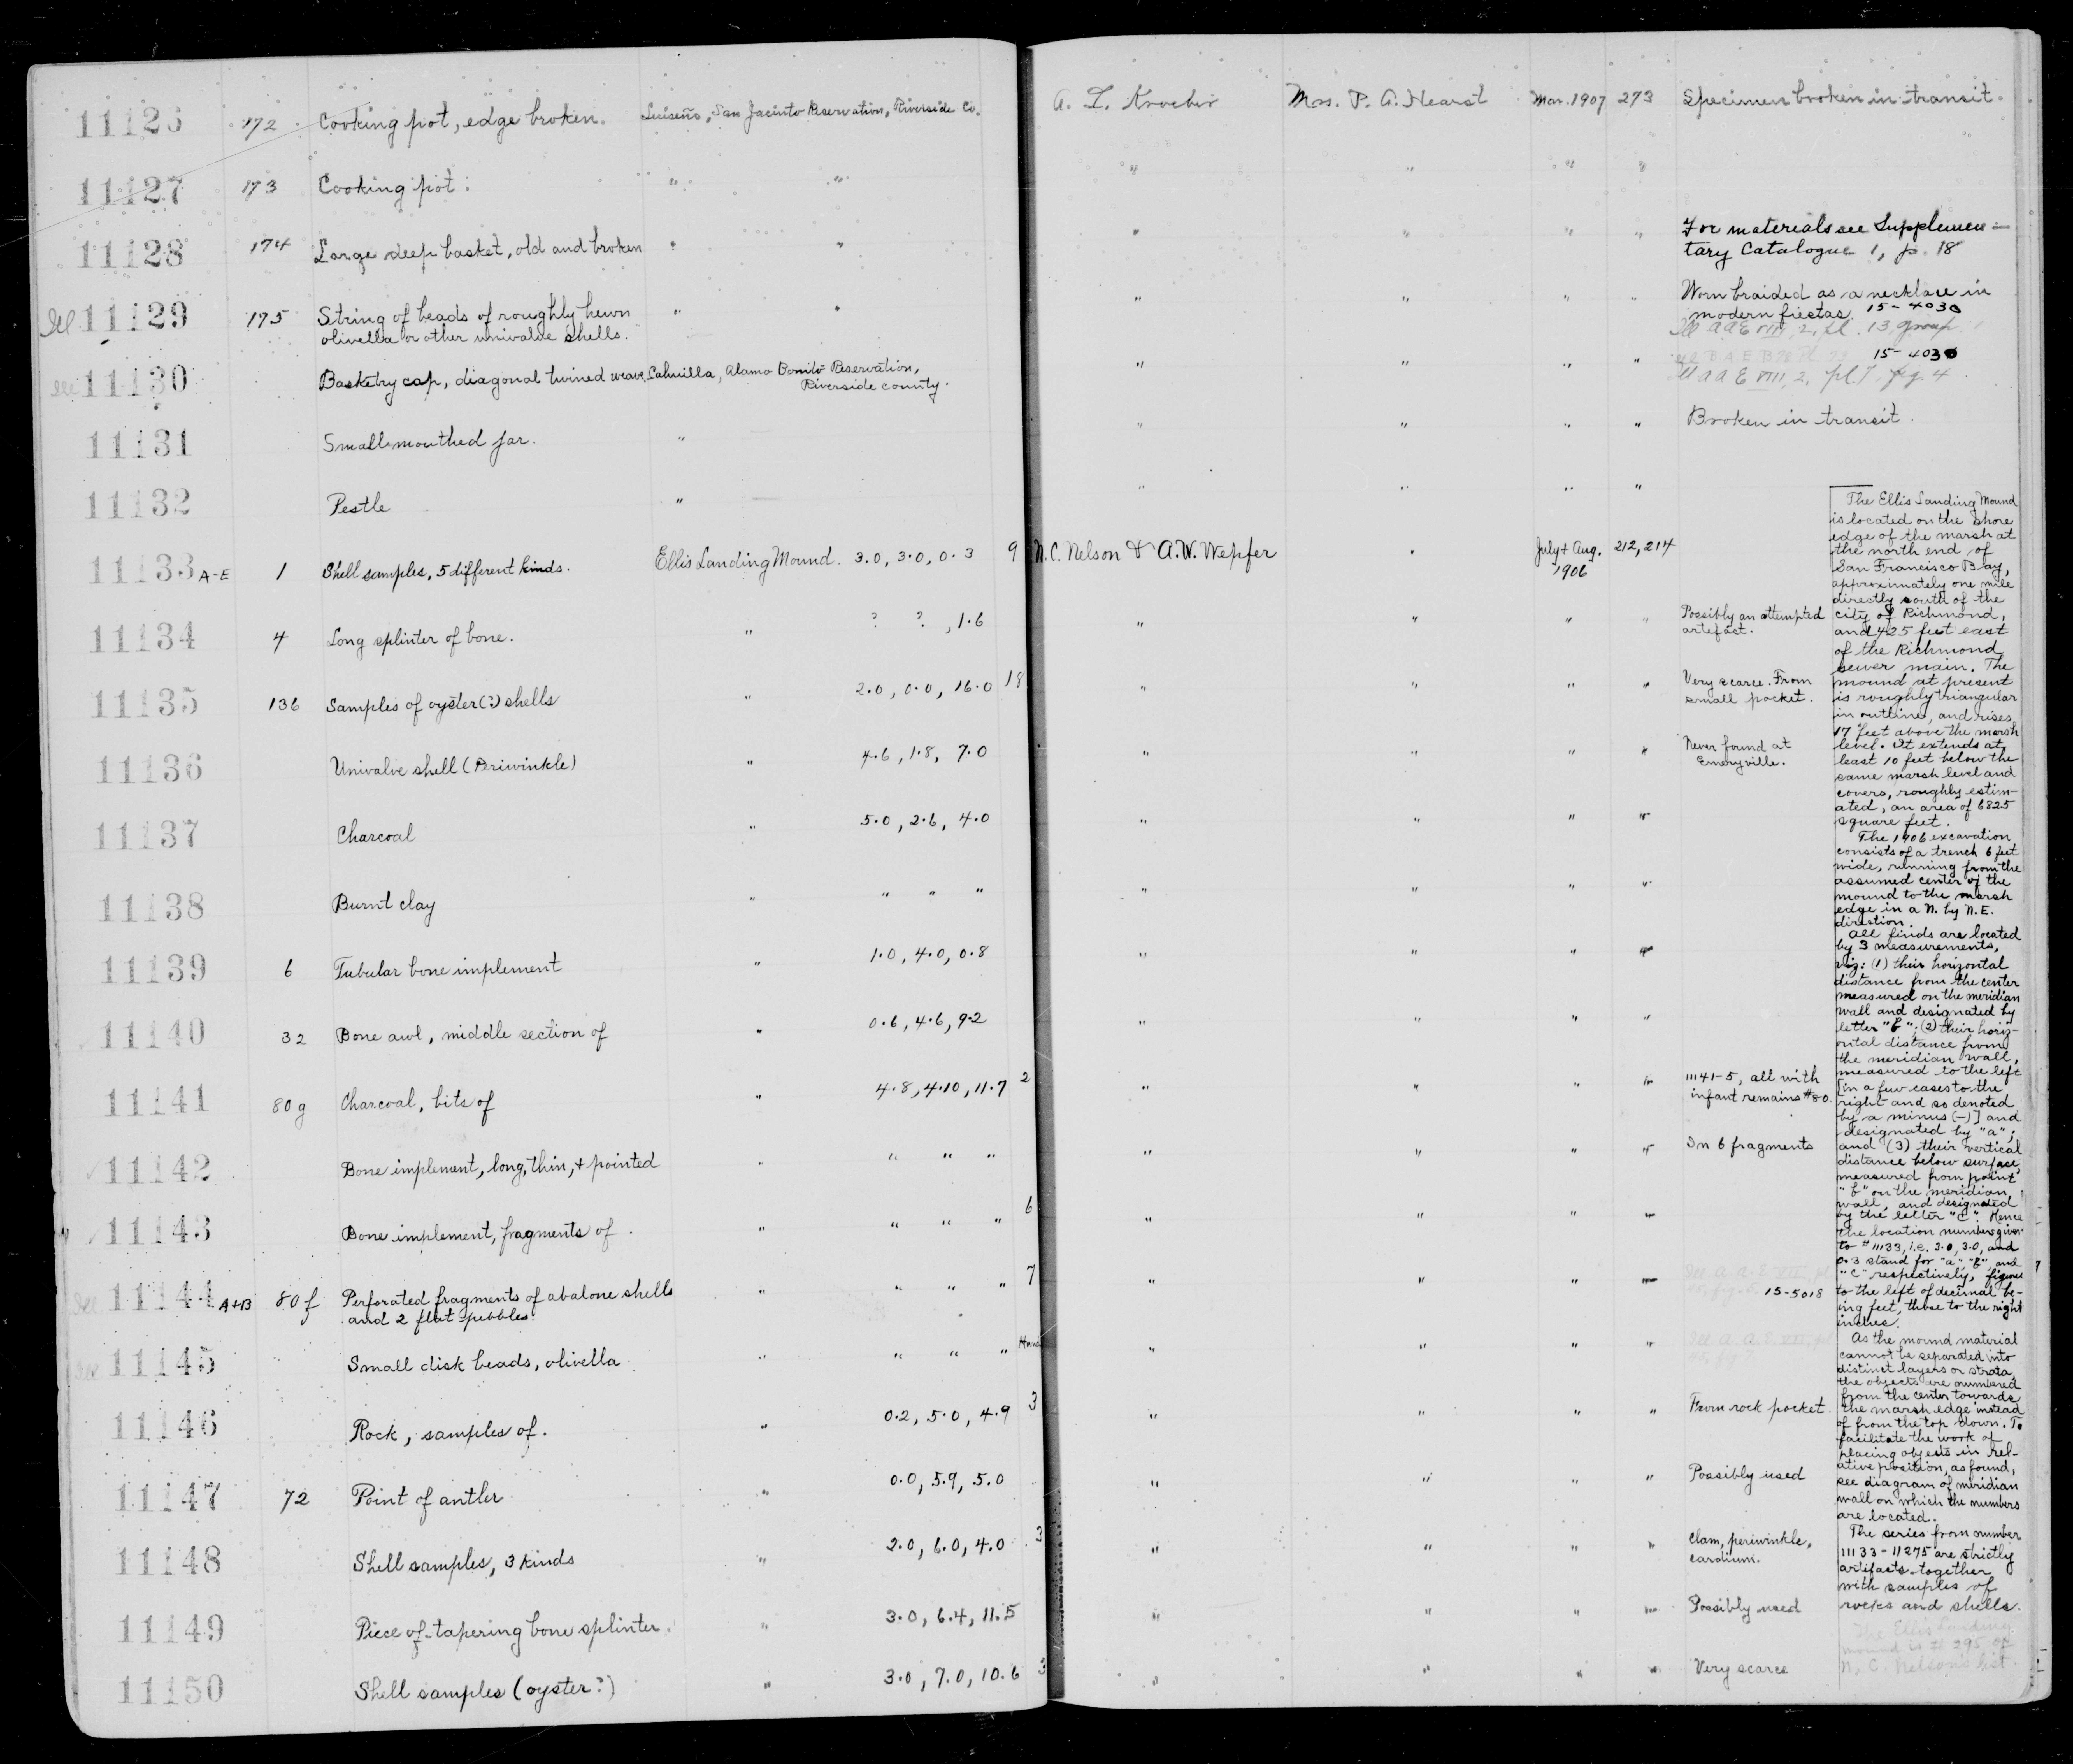 11126 172 Cooking pot, edge broken. Luiseño, San Jacinto Reservation, Riverside Co. A. L. Kroeber Mrs. P. A. Hearst Mar. 1907 273 Specimen broken in transit.
11127 173 Cooking pot. " " " " " "
11128 174 Large deep basket, old and broken " " " " " " For materials see Supplemen-
tary Catalogue 1, p. 18
Ill 11129 175 String of beads of roughly hewn " " " " " " Worn braided as a necklace in
olivella or other univalve shells. modern fiestas. 15-4030
Ill AAE VIII, 2, pl. 13 group
Ill 11130 Basketry cap, diagonal twined weave. Cahuilla, Alamo Bonito Reservation, " " " " 15-4030
Riverside county. Ill AAE VIII, 2, pl. 7 fig. 4
11131 Small mouthed jar. " " " " " Broken in transit.
11132 Pestle " " " " "
11133 A-E 1 Shell samples, 5 different kinds. Ellis Landing Mound. 3.0, 3.0, 0.3 9 N.C. Nelson & A.W. Wepfer " July & Aug. 212, 214
1906
11134 4 Long splinter of bone. " ? ? , 1.6 " " " " Possibly an attempted
artefact.
11135 136 Samples of oyster (?) shells " 2.0, 0.0, 16.0 18 " " " " Very scarce. From
small pocket.
11136 Univalve shell (Periwinkle) " 4.6, 1.8, 7.0 " " " " Never found at
Emeryville.
11137 Charcoal " 5.0, 2.6, 4.0 " " " "
11138 Burnt clay " " " " " " " "
11139 6 Tubular bone implement " 1.0, 4.0, 0.8 " " " "
11140 32 Bone awl, middle section of " 0.6, 4.6, 9.2 " " " "
11141 80g Charcoal, bits of " 4.8, 4.10, 11.7 2 " " " " 11141-5, all with
infant remains #80.
11142 Bone implement, long, thin, & pointed " " " " " " " " In 6 fragments
11143 Bone implement, fragments of. " " " " 6 " " " "
Ill 11144 A+B 80f Perforated fragments of abalone shells " " " " 7 " " " " Ill A.A.E. VII, pl.
and 2 flat pebbles. 15-5018
Ill 11145 Small disk beads, olivella " " " " " " " " Ill A.A.E. VII, pl.
11146 Rock, samples of. " 0.2, 5.0, 4.9 3 " " " " From rock pocket.
11147 72 Point of antler " 0.0, 5.9, 5.0 " " " " Possibly used
11148 Shell samples, 3 kinds " 2.0, 6.0, 4.0 3 " " " " Clam, periwinkle,
cardium.
11149 Piece of tapering bone splinter. " 3.0, 6.4, 11.5 " " " " Possibly used
11150 Shell samples (oyster?) " 3.0, 7.0, 10.6 3 " " " " Very scarce
The Ellis Landing Mound
is located on the shore
edge of the marsh at
the north end of
San Francisco Bay,
approximately one mile
directly south of the
city of Richmond,
and 425 feet east
of the Richmond
sewer main. The
mound at present
is roughly triangular
in outline, and rises
17 feet above the marsh
level. It extends at
least 10 feet below the
same marsh level and
covers, roughly estim-
ated, an area of 6825
square feet.
The 1906 excavation
consists of a trench 6 feet
wide, running from the
assumed center of the
mound to the marsh
edge in a N. by N.E.
direction.
All finds are located
by 3 measurements,
viz: (1) their horizontal
distance from the center
measured on the meridian
wall and designated by
letter "b"; (2) their horiz-
ontal distance from
the meridian wall,
measured to the left
[in a few cases to the
right and so denoted
by a minus (-)] and
designated by "a";
and (3) their vertical
distance below surface,
measured from point
"b" on the meridian
wall, and designated
by the letter "c". Hence
the location numbers given
to #11133, i.e. 3.0, 3.0, and
0.3 stand for "a", "b", and
"c" respectively, figures
to the left of decimal be-
ing feet, those to the right
inches.
As the mound material
cannot be separated into
distinct layers or strata,
the objects are numbered
from the center towards
the marsh edge instead
of from the top down. To
facilitate the work of
placing objects in rel-
ative position, as found,
see diagram of meridian
wall on which the numbers
are located.
The series from number
11133-11275 are strictly
artifacts together
with samples of
rocks and shells.
The Ellis Landing
mound is # 295 of
N. C. Nelson's list.